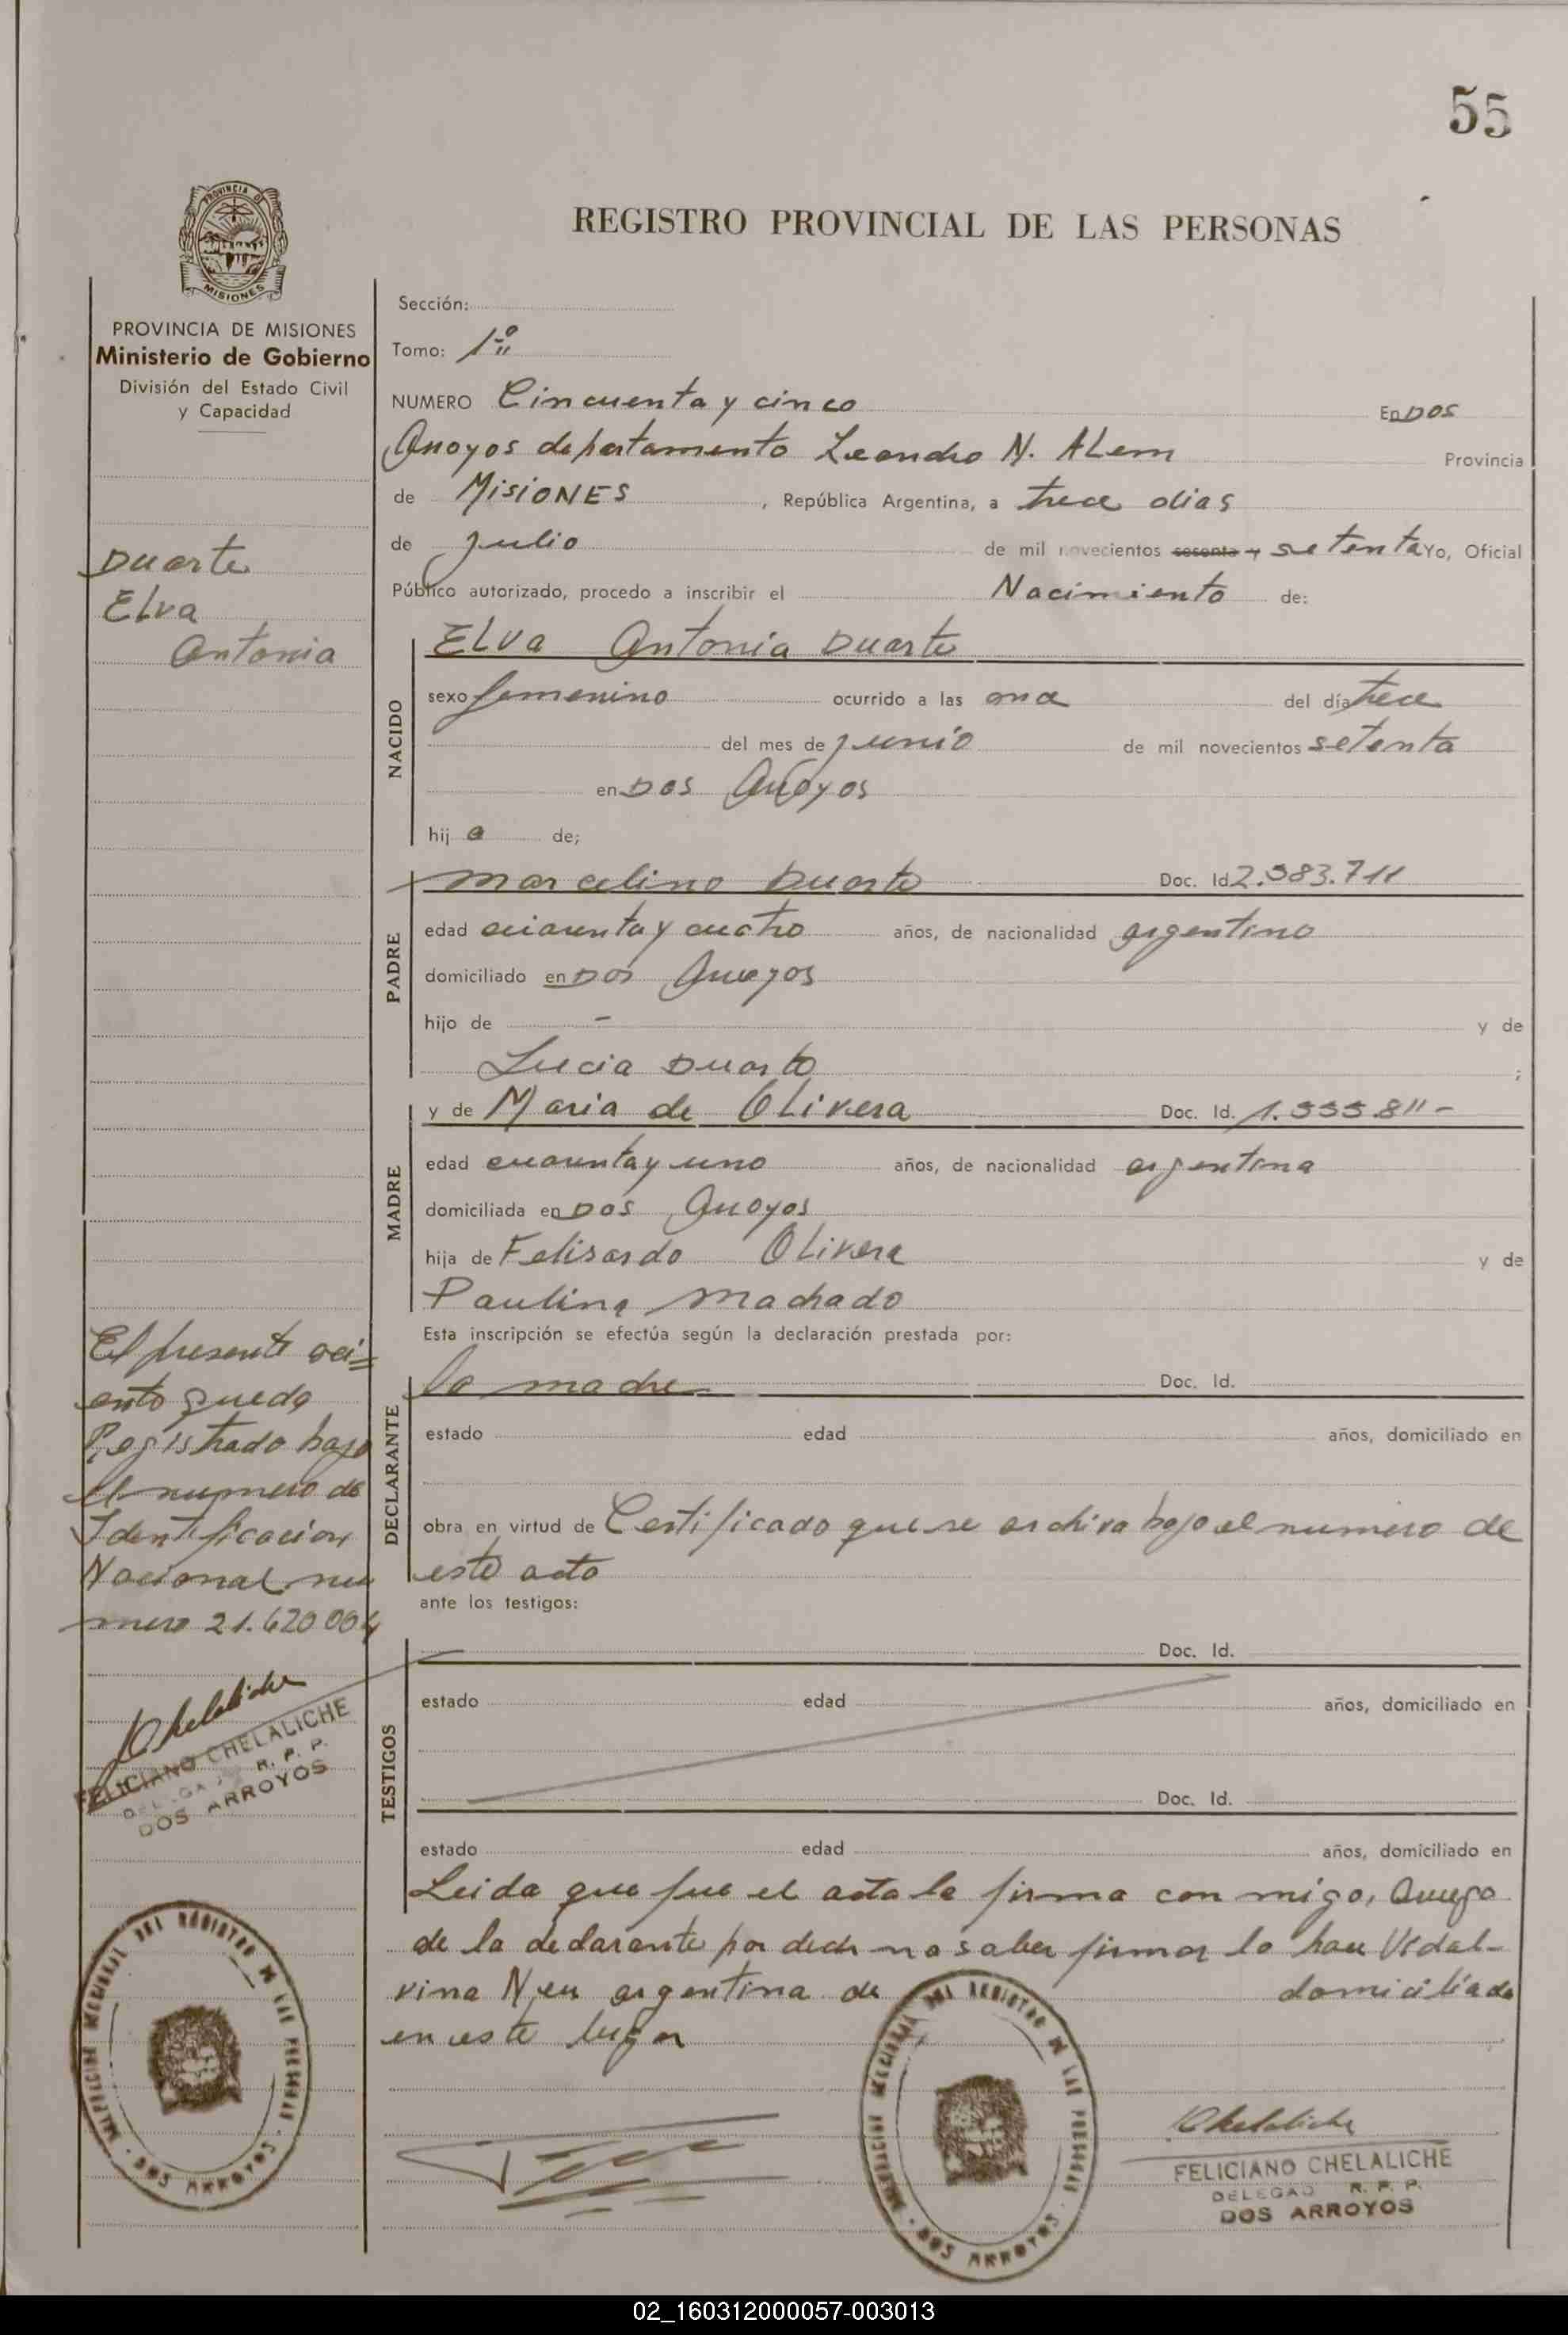 55
PROVINCIA DE
MISIONES
REGISTRO PROVINCIAL DE LAS PERSONAS
PROVINCIA DE MISIONES
Ministerio de Gobierno
División del Estado Civil
y Capacidad
Duarte
Elva
Antonia
Sección:
Tomo: 1º
NUMERO Cincuenta y cinco En Dos
Arroyos departamento Leandro N. Alem Provincia
de Misiones, República Argentina, a trece dias
de Julio de mil novecientos sesenta y setenta Yo, Oficial
Público autorizado, procedo a inscribir el Nacimiento de:
NACIDO
Elva Antonia Duarte
sexo femenino ocurrido a las una del día trece
del mes de junio de mil novecientos setenta
en Dos Arroyos
hij a de;
PADRE
Marcelino Duarte Doc. Id 2.583.711
edad cuarenta y cuatro años, de nacionalidad argentino
domiciliado en Dos Arroyos
hijo de - y de
Lucia Duarte ;
MADRE
y de Maria de Olivera Doc. Id. 1.555.811-
edad cuarenta y uno años, de nacionalidad argentina
domiciliada en Dos Arroyos
hija de Felisardo Olivera y de
Paulina Machado
Esta inscripción se efectúa según la declaración prestada por:
DECLARANTE
la madre Doc. Id.
estado edad años, domiciliado en
obra en virtud de Certificado que se archiva bajo el numero de
este acto
ante los testigos:
TESTIGOS
Doc. Id.
estado edad años, domiciliado en
Doc. Id.
estado edad años, domiciliado en
Leida que fue el acta la firma con migo, Ruego
de la declarante por decir no saber firmar lo hace Vidal-
vina argentina de domiciliada
en este lugar
El presente aci=
ento queda
Registrado bajo
el numero de
Identificacion
Nacional nu
mero 21.620.004
Chelaliche
FELICIANO CHELALICHE
DELEGADO R. P. P.
DOS ARROYOS
DELEGACION SECCIONAL DEL REGISTRO DE LAS PERSONAS
DOS ARROYOS
DELEGACION SECCIONAL DEL REGISTRO DE LAS PERSONAS
DOS ARROYOS
Chelaliche
FELICIANO CHELALICHE
DELEGADO R. P. P.
DOS ARROYOS
02_160312000057-003013